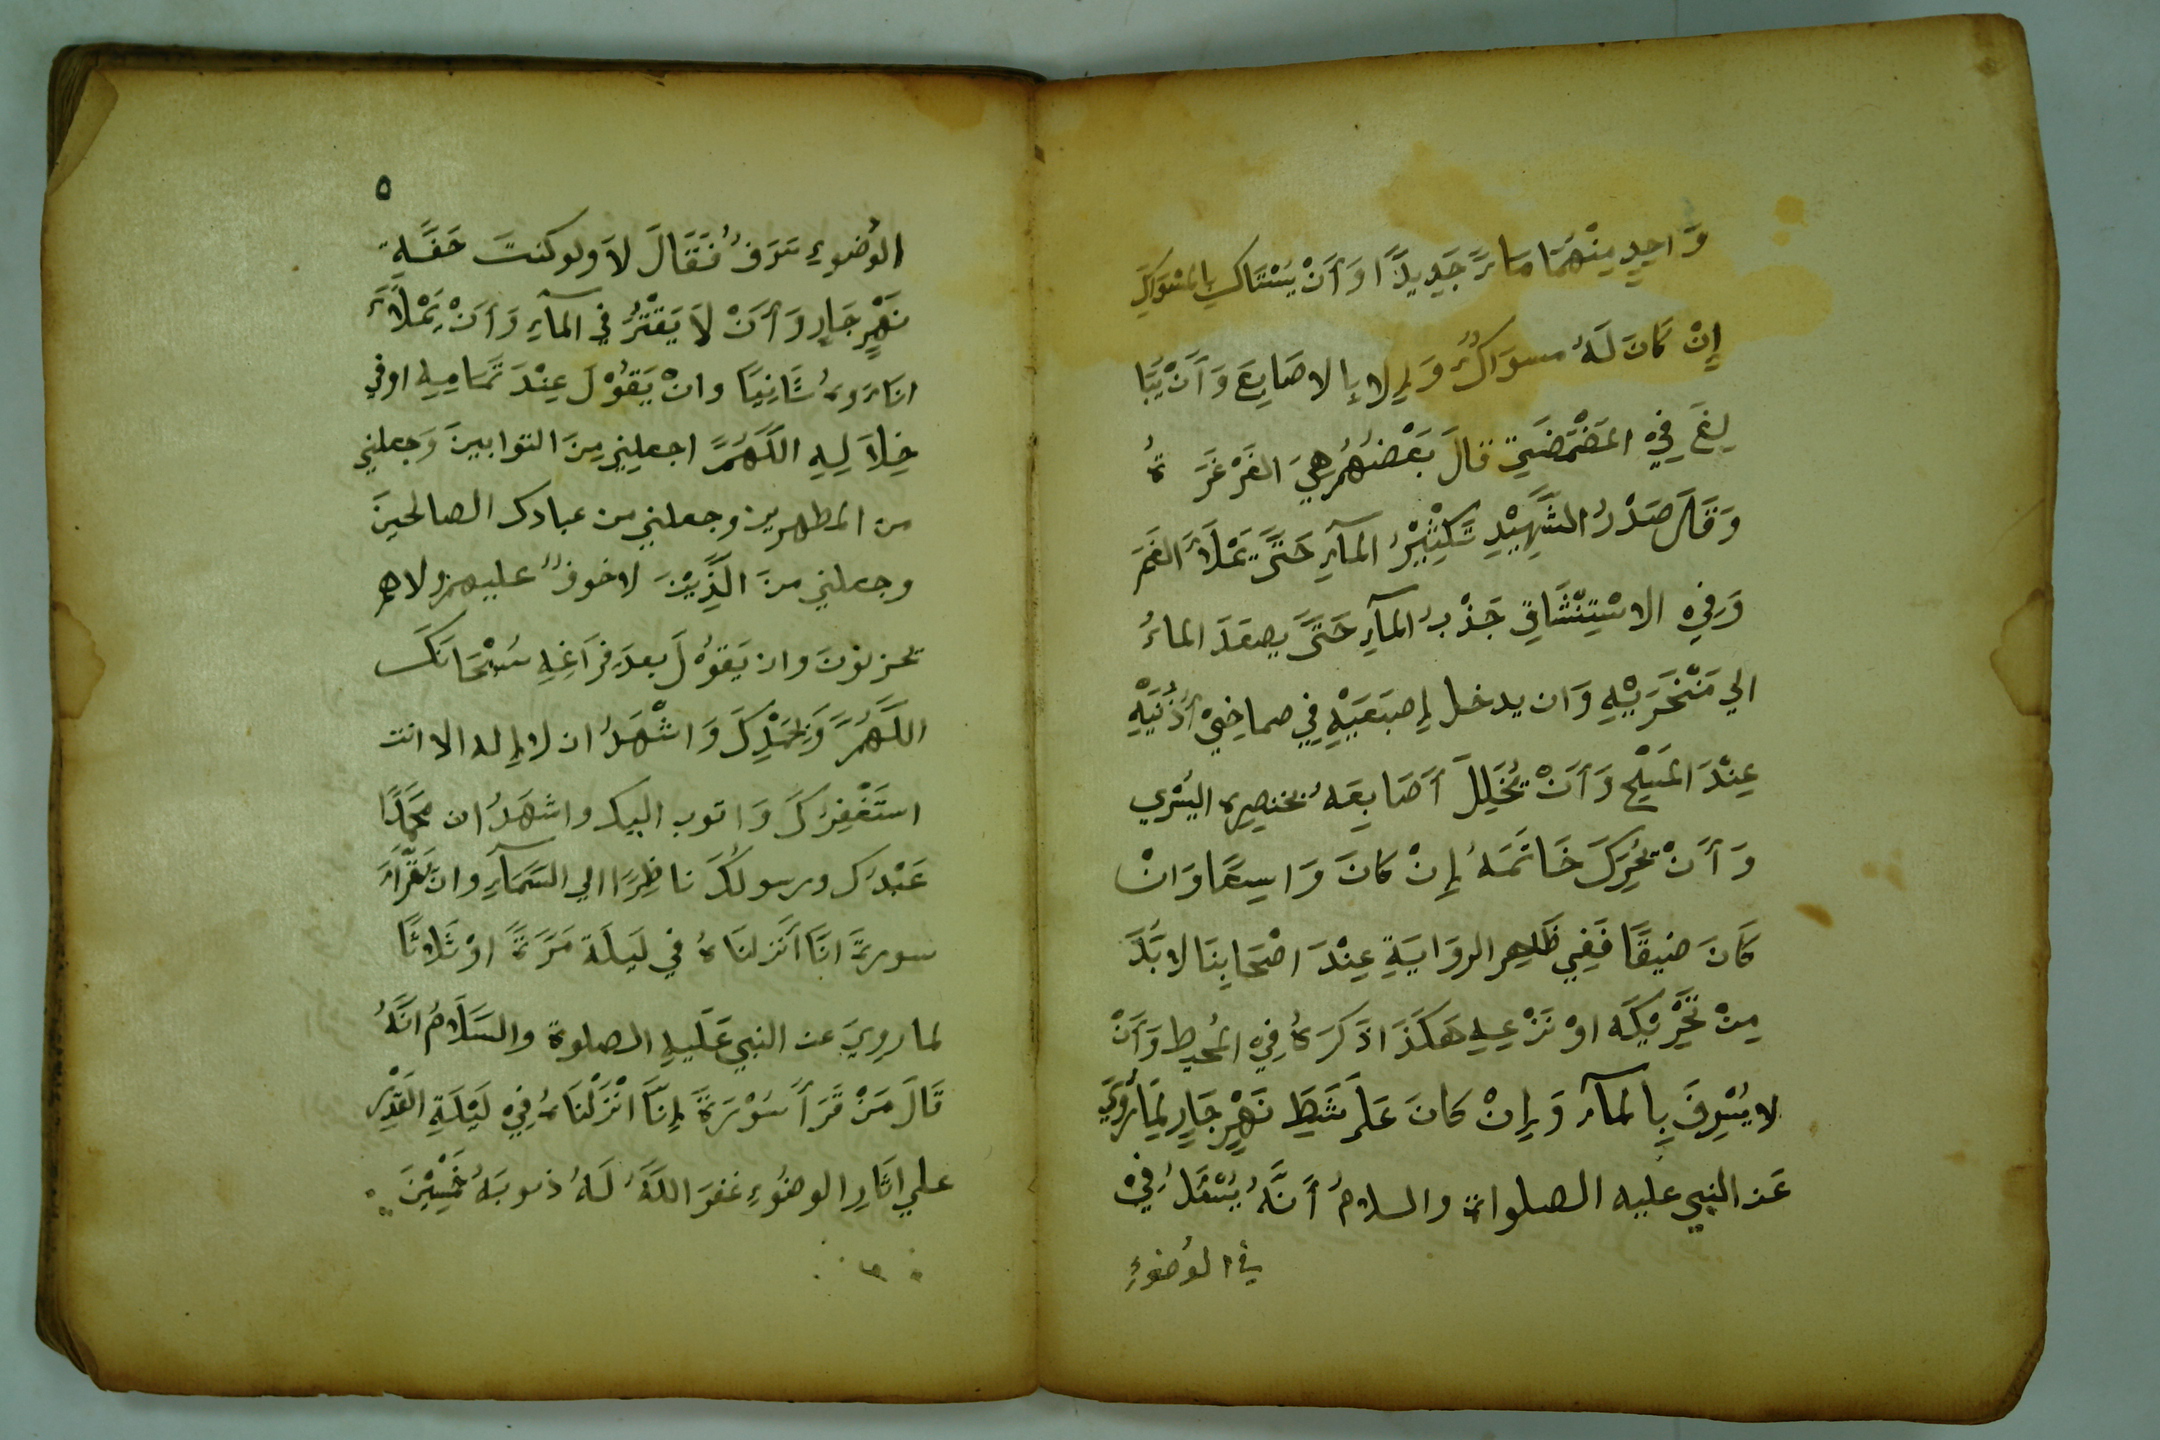 وَاحِدٍ مِنْهُمَا مَاءً جَدِيدًا وَأَنْ يَسْتَاكَ بِالْمِسْوَاكِ
إِنْ كَانَ لَهُ مسوَاكٌ وَإِلا بِالاصَابِعِ وَأَنْ يُبَا
لِغَ فِيْ المَضْمَضَةِ قالَ بَعْضُهُمْ هِيَ الغَرْغَرَةُ
وَقَالَ صَدْرُ الشَّهِيْدِ تَكْثِيْرُ المآءِ حَتَّى يَمْلَأَ الفَمَ
وَفِيْ الاسْتِنْشَاقِ جَذْبُ المآءِ حَتَّى يصعَدَ الماءُ
الي مَنْخَرَيْهِ وَان يدخل إِصبَعَيْهِ فِي صماخِيْ أُذُنَيْهِ
عِنْدَ المَسْحِ وَأَنْ يُخَلِلَ أَصَابِعَهُ بخنصِرِهِ اليُسْرٰي
وَأَنْ يُحَرِكَ خَاتَمَهُ إِنْ كَانَ وَاسِعًا وَانْ
كَانَ ضيقًا فَفِي ظَاهِرِ الروَايَةِ عِنْدَ اصْحَابِنَا لا بُدَّ
مِنْ تَحْرِيْكِهِ اوْ نَزْعِهِ هَكَذَا ذَكَرَهُ فِيْ المُحيطِ وَأَنْ
لا يُسْرِفَ بِالمآءِ وَإِنْ كانَ عَلَى شَطِّ نَهْرٍ جَارٍ لِمَا رُوِيَ
عَن النبي عليه الصلواة والسلامُ أَنَّهُ سُئِلَ فِيْ
في الوُضوُءِ
٥
الوُضوءِ سَرَفٌ فَقَالَ لاَ ولو كنتَ حَفَّةِ
نَهْرٍ جَارٍ وَأَنْ لاَ يَقْتُرُ في المآءِ وَأَنْ يَمْلَأَ
انَاءَوهُ ثَانِيًا وانْ يَقُوْلَ عِنْدَ تَمَامِهِ اوفي
خِلاَلِهِ اللَّهُمَّ اجعلنِي مِنَ التوابينَ وَجعلني
من المطهرين وجعلني من عبادك الصالحينَ
وجعلني منَ الَّذِيْنَ لاخوفٌ عليهم ولاهم
يحزنوْنَ وان يَقوُلَ بعدَ فِرَاغِهِ سُبْحَانَكَ
اللَّهُمَّ وَبِحَمْدِكَ وَاشْهَدُ ان لا إِله الا انت
استَغْفِرُكَ وَاتوب اليك واشهَدُ ان محمَّدًا
عَبْدُكَ ورسولُكَ ناظِرًا الي السَّمَآءِ وانْ يَقْرَأَ
سورةَ انَّا اَنزلنَاهُ في لَيلَةِ مَرَةً اوْ ثَلاثًا
لما رويَ عن النبي عَلَيهِ الصلوة والسَّلَامُ انَّهُ
قَالَ مَنْ قَرَأَ سُوْرَةَ إِنَّا انْزَلْنَاهُ فِيْ لَيْلَةِ القَدْرِ
علي اثَارِ الوضُوءِ غفرَ اللَّهُ لَهُ ذنوبَهُ خَمْسِيْنَ